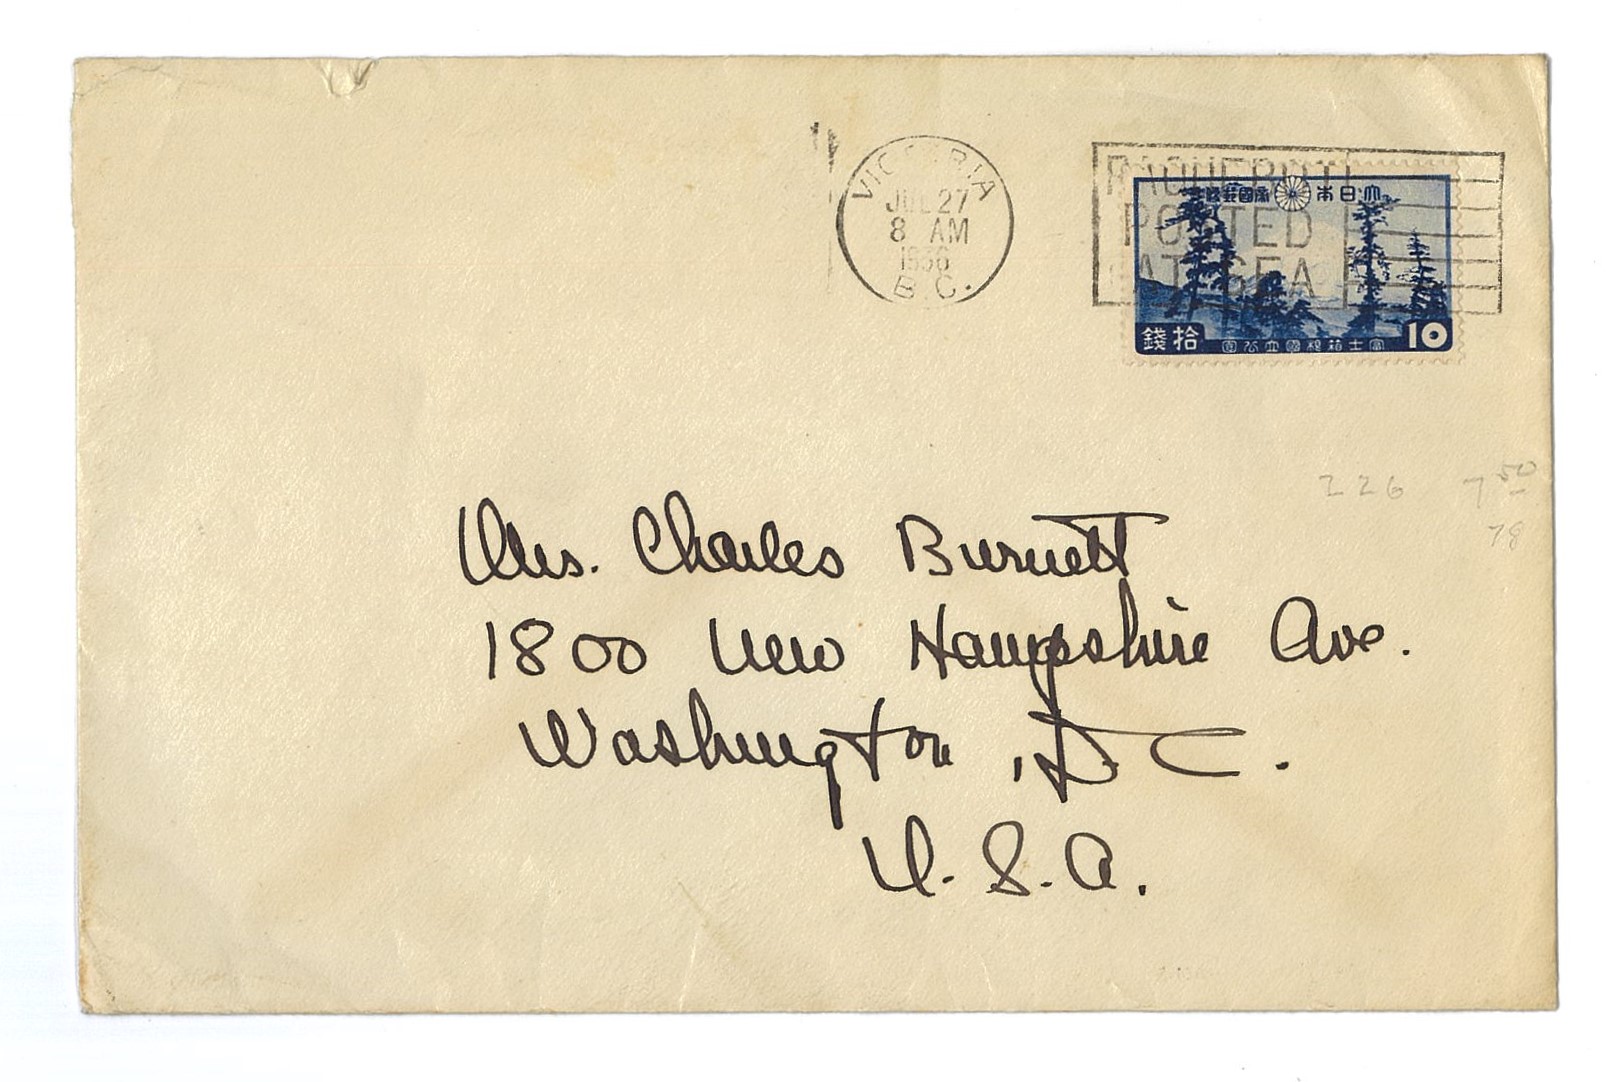 VICTORIA
JUL 27
8 AM
1936
B.C.
PAQUEBOT
POSTED
AT SEA
大日本帝國郵便
拾錢
富士箱根國立公園
10
226 7 50
78
Mrs. Charles Burnett
1800 New Hampshire Ave.
Washington, D C.
U. S. A.